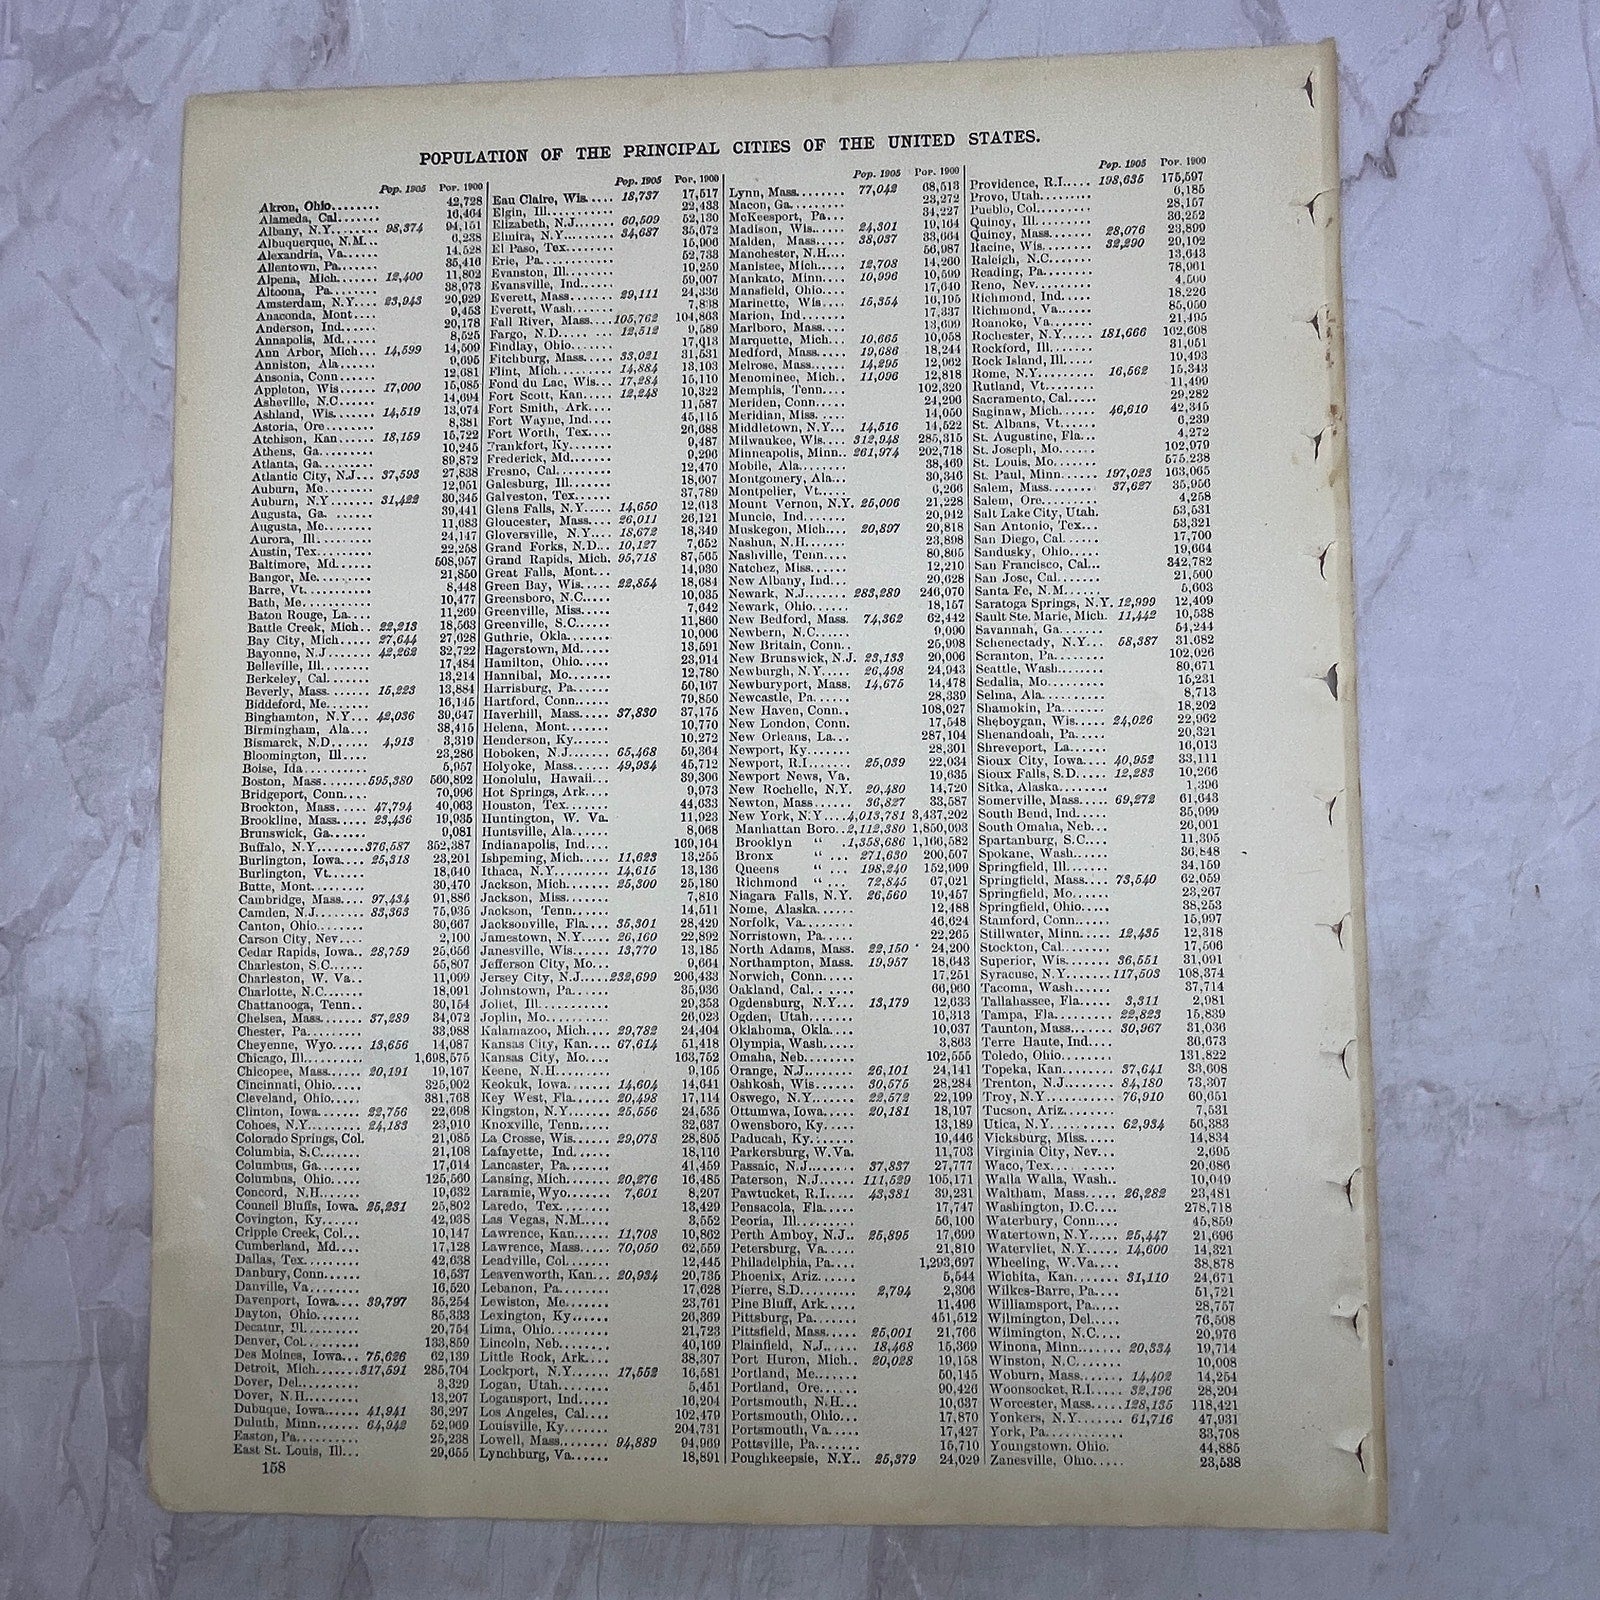 POPULATION OF THE PRINCIPAL CITIES OF THE UNITED STATES.
Pop. 1905 Pop. 1900
Akron, Ohio........ 42,728
Alameda, Cal....... 16,464
Albany, N.Y........ 98,374 94,151
Albuquerque, N.M... 6,238
Alexandria, Va..... 14,528
Allentown, Pa...... 35,416
Alpena, Mich....... 12,400 11,802
Altoona, Pa........ 38,973
Amsterdam, N.Y.... 23,943 20,929
Anaconda, Mont.... 9,453
Anderson, Ind...... 20,178
Annapolis, Md..... 8,525
Ann Arbor, Mich... 14,599 14,509
Anniston, Ala...... 9,695
Ansonia, Conn..... 12,681
Appleton, Wis..... 17,000 15,085
Asheville, N.C...... 14,694
Ashland, Wis...... 14,519 13,074
Astoria, Ore....... 8,381
Atchison, Kan..... 18,159 15,722
Athens, Ga........ 10,245
Atlanta, Ga........ 89,872
Atlantic City, N.J... 37,593 27,838
Auburn, Me....... 12,951
Auburn, N.Y...... 31,422 30,345
Augusta, Ga....... 39,441
Augusta, Me....... 11,683
Aurora, Ill........ 24,147
Austin, Tex....... 22,258
Baltimore, Md..... 508,957
Bangor, Me........ 21,850
Barre, Vt.......... 8,448
Bath, Me.......... 10,477
Baton Rouge, La... 11,269
Battle Creek, Mich.. 22,213 18,563
Bay City, Mich.... 27,644 27,628
Bayonne, N.J...... 42,262 32,722
Belleville, Ill....... 17,484
Berkeley, Cal...... 13,214
Beverly, Mass...... 15,223 13,884
Biddeford, Me..... 16,145
Binghamton, N.Y... 42,036 39,647
Birmingham, Ala... 38,415
Bismarck, N.D..... 4,913 3,319
Bloomington, Ill.... 23,286
Boise, Ida......... 5,957
Boston, Mass...... 595,380 560,892
Bridgeport, Conn.... 70,996
Brockton, Mass..... 47,794 40,063
Brookline, Mass..... 23,436 19,935
Brunswick, Ga...... 9,081
Buffalo, N.Y....... 376,587 352,387
Burlington, Iowa.... 25,318 23,201
Burlington, Vt...... 18,640
Butte, Mont........ 30,470
Cambridge, Mass... 97,434 91,886
Camden, N.J....... 83,363 75,935
Canton, Ohio....... 30,667
Carson City, Nev.... 2,100
Cedar Rapids, Iowa.. 28,759 25,656
Charleston, S.C...... 55,807
Charleston, W. Va.. 11,099
Charlotte, N.C...... 18,091
Chattanooga, Tenn.. 30,154
Chelsea, Mass...... 37,289 34,072
Chester, Pa........ 33,988
Cheyenne, Wyo.... 13,656 14,087
Chicago, Ill........ 1,698,575
Chicopee, Mass..... 20,191 19,167
Cincinnati, Ohio..... 325,902
Cleveland, Ohio..... 381,768
Clinton, Iowa....... 22,756 22,698
Cohoes, N.Y........ 24,183 23,910
Colorado Springs, Col. 21,085
Columbia, S.C....... 21,108
Columbus, Ga...... 17,614
Columbus, Ohio..... 125,560
Concord, N.H....... 19,632
Council Bluffs, Iowa. 25,231 25,802
Covington, Ky...... 42,938
Cripple Creek, Col... 10,147
Cumberland, Md.... 17,128
Dallas, Tex......... 42,638
Danbury, Conn..... 16,537
Danville, Va........ 16,520
Davenport, Iowa.... 39,797 35,254
Dayton, Ohio....... 85,333
Decatur, Ill......... 20,754
Denver, Col......... 133,859
Des Moines, Iowa... 75,626 62,139
Detroit, Mich....... 317,591 285,704
Dover, Del.......... 3,329
Dover, N.H......... 13,207
Dubuque, Iowa...... 41,941 36,297
Duluth, Minn....... 64,942 52,969
Easton, Pa.......... 25,238
East St. Louis, Ill... 29,655
158
Pop. 1905 Pop. 1900
Eau Claire, Wis..... 18,737 17,517
Elgin, Ill.......... 22,433
Elizabeth, N.J....... 60,509 52,130
Elmira, N.Y........ 34,687 35,672
El Paso, Tex........ 15,906
Erie, Pa........... 52,733
Evanston, Ill....... 19,259
Evansville, Ind..... 59,007
Everett, Mass....... 29,111 24,336
Everett, Wash...... 7,838
Fall River, Mass.... 105,762 104,863
Fargo, N.D......... 12,512 9,589
Findlay, Ohio....... 17,613
Fitchburg, Mass.... 33,021 31,531
Flint, Mich......... 14,884 13,103
Fond du Lac, Wis... 17,284 15,110
Fort Scott, Kan..... 12,248 10,322
Fort Smith, Ark.... 11,587
Fort Wayne, Ind.... 45,115
Fort Worth, Tex.... 26,688
Frankfort, Ky....... 9,487
Frederick, Md....... 9,296
Fresno, Cal......... 12,470
Galesburg, Ill....... 18,607
Galveston, Tex..... 37,789
Glens Falls, N.Y.... 14,650 12,613
Gloucester, Mass.... 26,011 26,121
Gloversville, N.Y.... 18,672 18,349
Grand Forks, N.D... 10,127 7,652
Grand Rapids, Mich. 95,718 87,565
Great Falls, Mont... 14,930
Green Bay, Wis..... 22,854 18,684
Greensboro, N.C.... 10,035
Greenville, Miss.... 7,642
Greenville, S.C..... 11,860
Guthrie, Okla...... 10,006
Hagerstown, Md.... 13,591
Hamilton, Ohio..... 23,914
Hannibal, Mo...... 12,780
Harrisburg, Pa..... 50,167
Hartford, Conn..... 79,850
Haverhill, Mass..... 37,830 37,175
Helena, Mont....... 10,770
Henderson, Ky..... 10,272
Hoboken, N.J....... 65,468 59,364
Holyoke, Mass..... 49,934 45,712
Honolulu, Hawaii... 39,306
Hot Springs, Ark.... 9,973
Houston, Tex....... 44,633
Huntington, W. Va. 11,923
Huntsville, Ala..... 8,068
Indianapolis, Ind.... 169,164
Ishpeming, Mich.... 11,623 13,255
Ithaca, N.Y........ 14,615 13,136
Jackson, Mich...... 25,300 25,180
Jackson, Miss....... 7,816
Jackson, Tenn...... 14,511
Jacksonville, Fla.... 35,301 28,429
Jamestown, N.Y.... 26,160 22,892
Janesville, Wis..... 13,770 13,185
Jefferson City, Mo... 9,664
Jersey City, N.J..... 232,699 206,433
Johnstown, Pa...... 35,936
Joliet, Ill.......... 29,353
Joplin, Mo......... 26,023
Kalamazoo, Mich.... 29,782 24,404
Kansas City, Kan.... 67,614 51,418
Kansas City, Mo.... 163,752
Keene, N.H........ 9,165
Keokuk, Iowa...... 14,604 14,641
Key West, Fla...... 20,498 17,114
Kingston, N.Y...... 25,556 24,535
Knoxville, Tenn.... 32,637
La Crosse, Wis..... 29,078 28,895
Lafayette, Ind...... 18,116
Lancaster, Pa....... 41,459
Lansing, Mich...... 20,276 16,485
Laramie, Wyo...... 7,601 8,207
Laredo, Tex........ 13,429
Las Vegas, N.M.... 3,552
Lawrence, Kan..... 11,708 10,862
Lawrence, Mass.... 70,050 62,559
Leadville, Col...... 12,445
Leavenworth, Kan... 20,934 20,735
Lebanon, Pa........ 17,628
Lewiston, Me...... 23,761
Lexington, Ky...... 26,369
Lima, Ohio......... 21,723
Lincoln, Neb....... 40,169
Little Rock, Ark.... 38,307
Lockport, N.Y...... 17,552 16,581
Logan, Utah....... 5,451
Logansport, Ind.... 16,204
Los Angeles, Cal.... 102,479
Louisville, Ky...... 204,731
Lowell, Mass....... 94,889 94,969
Lynchburg, Va...... 18,891
Pop. 1905 Pop. 1900
Lynn, Mass........ 77,042 68,513
Macon, Ga........ 23,272
McKeesport, Pa... 34,227
Madison, Wis..... 24,301 19,164
Malden, Mass..... 38,037 33,664
Manchester, N.H.... 56,987
Manistee, Mich.... 12,708 14,260
Mankato, Minn.... 10,996 10,599
Mansfield, Ohio.... 17,640
Marinette, Wis.... 15,354 16,195
Marion, Ind....... 17,337
Marlboro, Mass.... 13,609
Marquette, Mich... 10,665 10,058
Medford, Mass..... 19,686 18,244
Melrose, Mass..... 14,295 12,962
Menominee, Mich.. 11,096 12,818
Memphis, Tenn.... 102,320
Meriden, Conn.... 24,296
Meridian, Miss..... 14,050
Middletown, N.Y... 14,516 14,522
Milwaukee, Wis.... 312,948 285,315
Minneapolis, Minn.. 261,974 202,718
Mobile, Ala........ 38,469
Montgomery, Ala... 30,346
Montpelier, Vt..... 6,266
Mount Vernon, N.Y. 25,006 21,228
Muncie, Ind....... 20,942
Muskegon, Mich.... 20,897 20,818
Nashua, N.H...... 23,898
Nashville, Tenn.... 80,865
Natchez, Miss..... 12,210
New Albany, Ind... 20,628
Newark, N.J...... 283,289 246,070
Newark, Ohio...... 18,157
New Bedford, Mass. 74,362 62,442
Newbern, N.C...... 9,090
New Britain, Conn.. 25,998
New Brunswick, N.J. 23,133 20,006
Newburgh, N.Y..... 26,498 24,943
Newburyport, Mass. 14,675 14,478
Newcastle, Pa..... 28,339
New Haven, Conn.. 108,027
New London, Conn. 17,548
New Orleans, La... 287,104
Newport, Ky...... 28,301
Newport, R.I...... 25,039 22,034
Newport News, Va. 19,635
New Rochelle, N.Y. 20,480 14,720
Newton, Mass..... 36,827 33,587
New York, N.Y.... 4,013,781 3,437,202
Manhattan Boro.. 2,112,380 1,850,093
Brooklyn " . 1,358,686 1,166,582
Bronx " ... 271,630 200,507
Queens " ... 198,240 152,999
Richmond " ... 72,845 67,021
Niagara Falls, N.Y. 26,560 19,457
Nome, Alaska...... 12,488
Norfolk, Va....... 46,624
Norristown, Pa..... 22,265
North Adams, Mass. 22,150 24,200
Northampton, Mass. 19,957 18,643
Norwich, Conn.... 17,251
Oakland, Cal...... 66,960
Ogdensburg, N.Y... 13,179 12,633
Ogden, Utah...... 16,313
Oklahoma, Okla.... 10,037
Olympia, Wash.... 3,863
Omaha, Neb....... 102,555
Orange, N.J....... 26,101 24,141
Oshkosh, Wis...... 30,575 28,284
Oswego, N.Y...... 22,572 22,199
Ottumwa, Iowa.... 20,181 18,197
Owensboro, Ky.... 13,189
Paducah, Ky...... 19,446
Parkersburg, W.Va. 11,703
Passaic, N.J....... 37,837 27,777
Paterson, N.J..... 111,529 105,171
Pawtucket, R.I.... 43,381 39,231
Pensacola, Fla.... 17,747
Peoria, Ill........ 56,100
Perth Amboy, N.J.. 25,895 17,699
Petersburg, Va..... 21,810
Philadelphia, Pa.... 1,293,697
Phoenix, Ariz...... 5,544
Pierre, S.D........ 2,794 2,306
Pine Bluff, Ark.... 11,496
Pittsburg, Pa...... 451,512
Pittsfield, Mass.... 25,001 21,766
Plainfield, N.J..... 18,468 15,369
Port Huron, Mich.. 20,028 19,158
Portland, Me...... 50,145
Portland, Ore..... 90,426
Portsmouth, N.H... 10,637
Portsmouth, Ohio... 17,870
Portsmouth, Va.... 17,427
Pottsville, Pa...... 15,710
Poughkeepsie, N.Y.. 25,379 24,029
Pop. 1905 Pop. 1900
Providence, R.I..... 198,635 175,597
Provo, Utah......... 6,185
Pueblo, Col......... 28,157
Quincy, Ill......... 36,252
Quincy, Mass....... 28,076 23,899
Racine, Wis........ 32,290 29,102
Raleigh, N.C....... 13,643
Reading, Pa........ 78,961
Reno, Nev......... 4,500
Richmond, Ind..... 18,226
Richmond, Va...... 85,050
Roanoke, Va....... 21,495
Rochester, N.Y..... 181,666 102,608
Rockford, Ill....... 31,051
Rock Island, Ill.... 19,493
Rome, N.Y........ 16,562 15,343
Rutland, Vt....... 11,499
Sacramento, Cal.... 29,282
Saginaw, Mich..... 46,610 42,345
St. Albans, Vt..... 6,239
St. Augustine, Fla... 4,272
St. Joseph, Mo..... 102,979
St. Louis, Mo...... 575,238
St. Paul, Minn..... 197,023 163,065
Salem, Mass....... 37,627 35,956
Salem, Ore........ 4,258
Salt Lake City, Utah. 53,531
San Antonio, Tex... 53,321
San Diego, Cal..... 17,700
Sandusky, Ohio.... 19,664
San Francisco, Cal... 342,782
San Jose, Cal...... 21,500
Santa Fe, N.M..... 5,603
Saratoga Springs, N.Y. 12,999 12,409
Sault Ste. Marie, Mich. 11,442 10,538
Savannah, Ga...... 54,244
Schenectady, N.Y... 58,387 31,682
Scranton, Pa....... 102,026
Seattle, Wash...... 80,671
Sedalia, Mo....... 15,231
Selma, Ala........ 8,713
Shamokin, Pa..... 18,202
Sheboygan, Wis.... 24,026 22,962
Shenandoah, Pa.... 20,321
Shreveport, La.... 16,013
Sioux City, Iowa... 40,952 33,111
Sioux Falls, S.D.... 12,283 10,266
Sitka, Alaska...... 1,396
Somerville, Mass.... 69,272 61,643
South Bend, Ind... 35,999
South Omaha, Neb... 26,001
Spartanburg, S.C.... 11,395
Spokane, Wash..... 36,848
Springfield, Ill..... 34,159
Springfield, Mass... 73,540 62,059
Springfield, Mo.... 23,267
Springfield, Ohio.... 38,253
Stamford, Conn.... 15,997
Stillwater, Minn.... 12,435 12,318
Stockton, Cal..... 17,506
Superior, Wis..... 36,551 31,091
Syracuse, N.Y...... 117,503 108,374
Tacoma, Wash..... 37,714
Tallahassee, Fla..... 3,311 2,981
Tampa, Fla........ 22,823 15,839
Taunton, Mass..... 30,967 31,036
Terre Haute, Ind.... 36,673
Toledo, Ohio...... 131,822
Topeka, Kan...... 37,641 33,608
Trenton, N.J...... 84,180 73,307
Troy, N.Y........ 76,910 60,651
Tucson, Ariz...... 7,531
Utica, N.Y........ 62,934 56,383
Vicksburg, Miss.... 14,834
Virginia City, Nev... 2,695
Waco, Tex........ 20,686
Walla Walla, Wash.. 10,049
Waltham, Mass.... 26,282 23,481
Washington, D.C.... 278,718
Waterbury, Conn.... 45,859
Watertown, N.Y..... 25,447 21,696
Watervliet, N.Y..... 14,600 14,321
Wheeling, W.Va.... 38,878
Wichita, Kan...... 31,110 24,671
Wilkes-Barre, Pa.... 51,721
Williamsport, Pa.... 28,757
Wilmington, Del.... 76,508
Wilmington, N.C.... 20,976
Winona, Minn..... 20,334 19,714
Winston, N.C...... 10,008
Woburn, Mass..... 14,402 14,254
Woonsocket, R.I.... 32,196 28,204
Worcester, Mass.... 128,135 118,421
Yonkers, N.Y...... 61,716 47,931
York, Pa.......... 33,708
Youngstown, Ohio. 44,885
Zanesville, Ohio..... 23,538